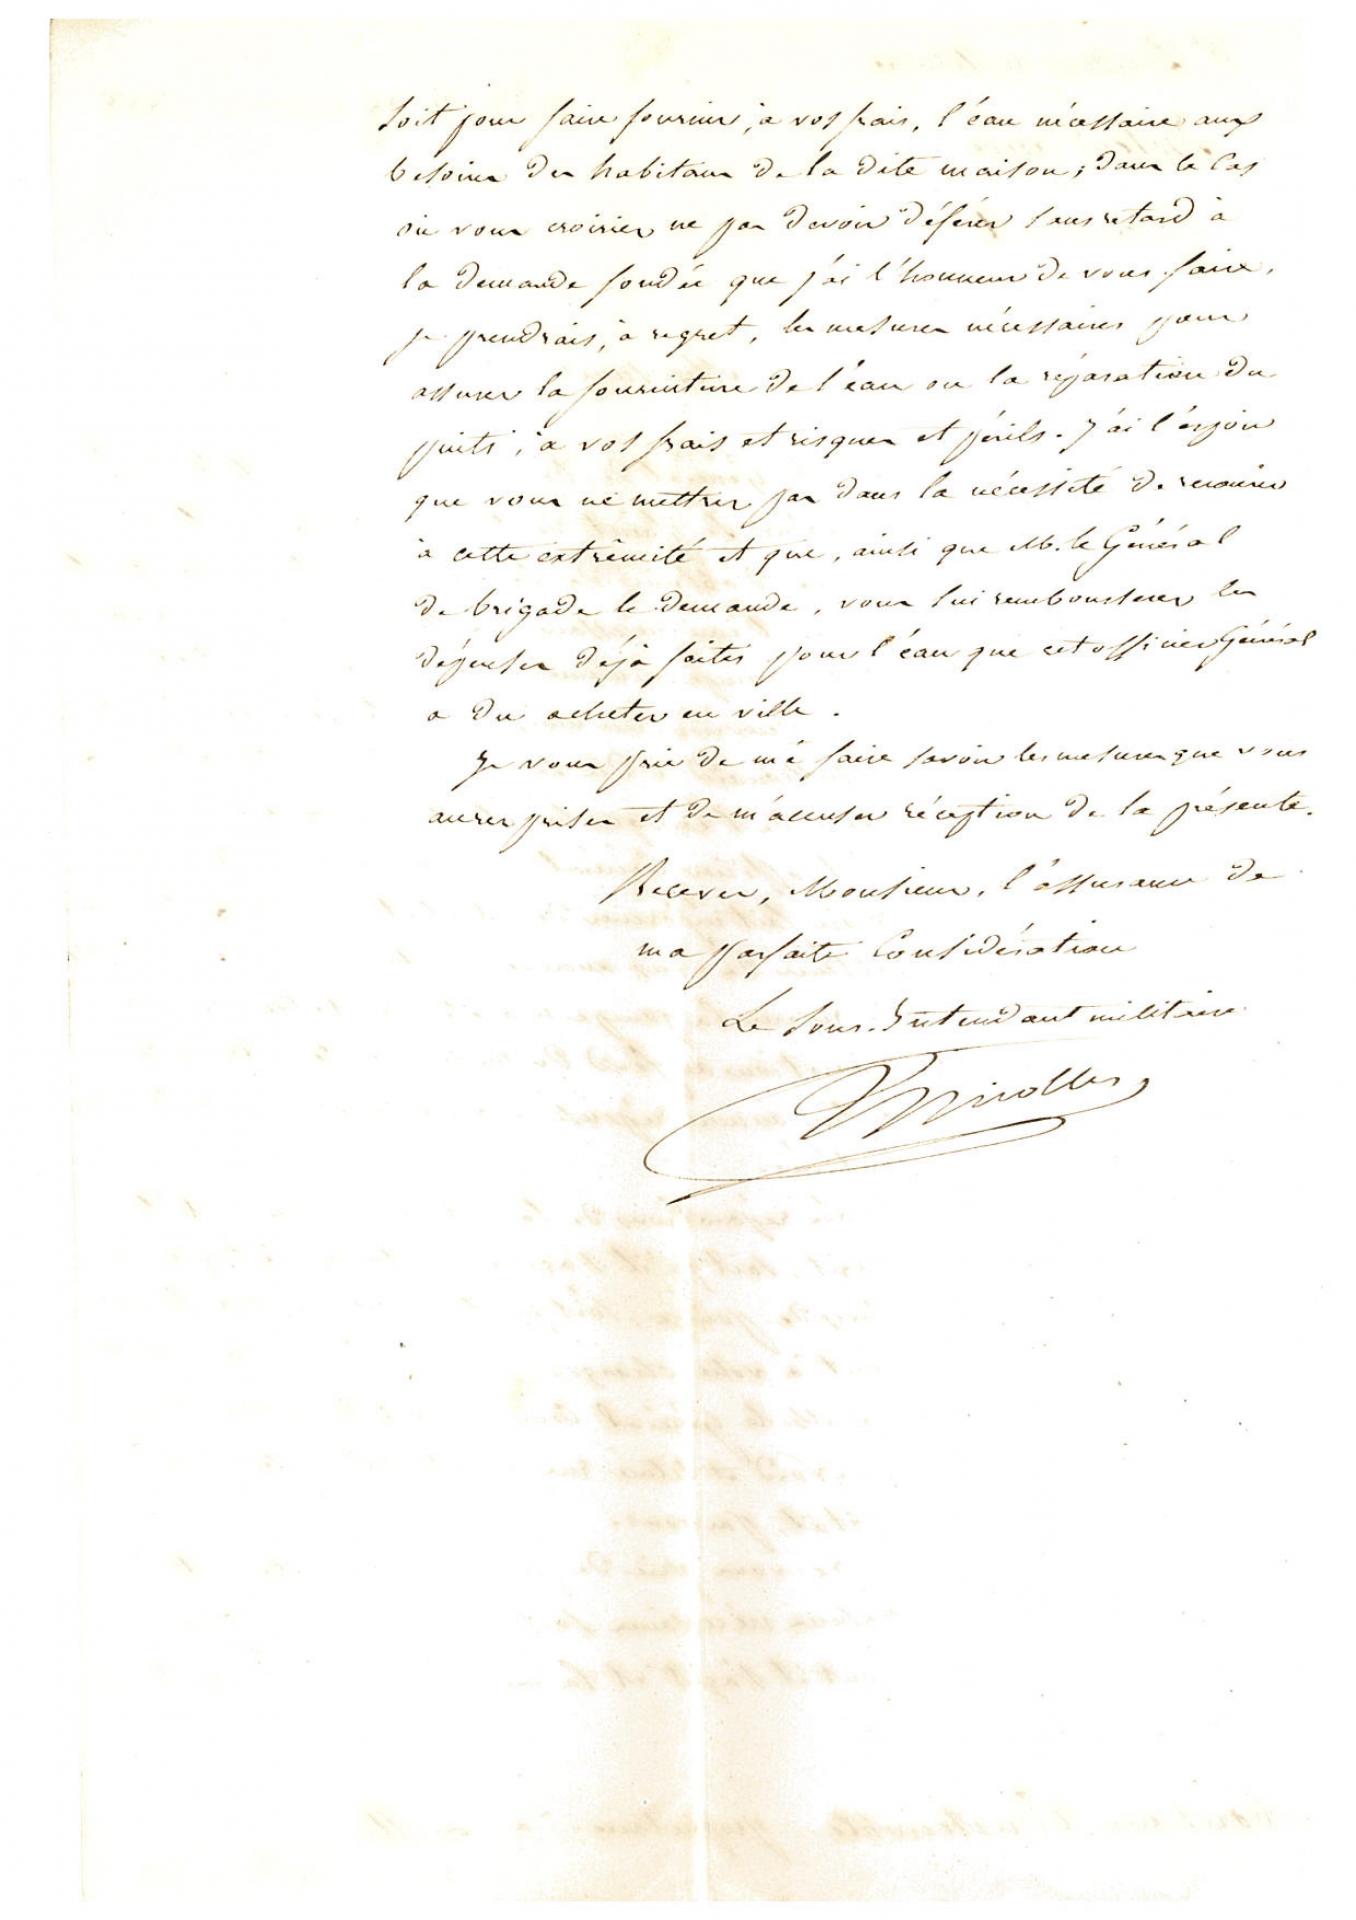 soit pour faire fournir, à vos frais, l'éau nécessaire aux
besoins des habitans de la dite maison; dans le cas
où vous croiriez ne pas devoir déférer sans retard à
la demande fondée que j'ai l'honneur de vous faire,
je prendrais, à regret, les mesures nécessaires pour
assurer la fourniture de l'éau ou la réparation du
puits, à vos frais et risques et périls. J'ai l'espoir
que vous ne mettrez pas dans la nécessité de recourir
à cette extrêmité et que, ainsi que M. le Général
de brigade le demande, vous lui rembourserez les
dépenses déjà faites pour l'éau que cet officier Général
a du acheter en ville.
Je vous prie de me faire savoir les mesures que vous
aurez prises et de m'accuser réception de la présente.
Recevez, Monsieur, l'assurance de
ma parfaite Considération
Le Sous-Intendant militaire